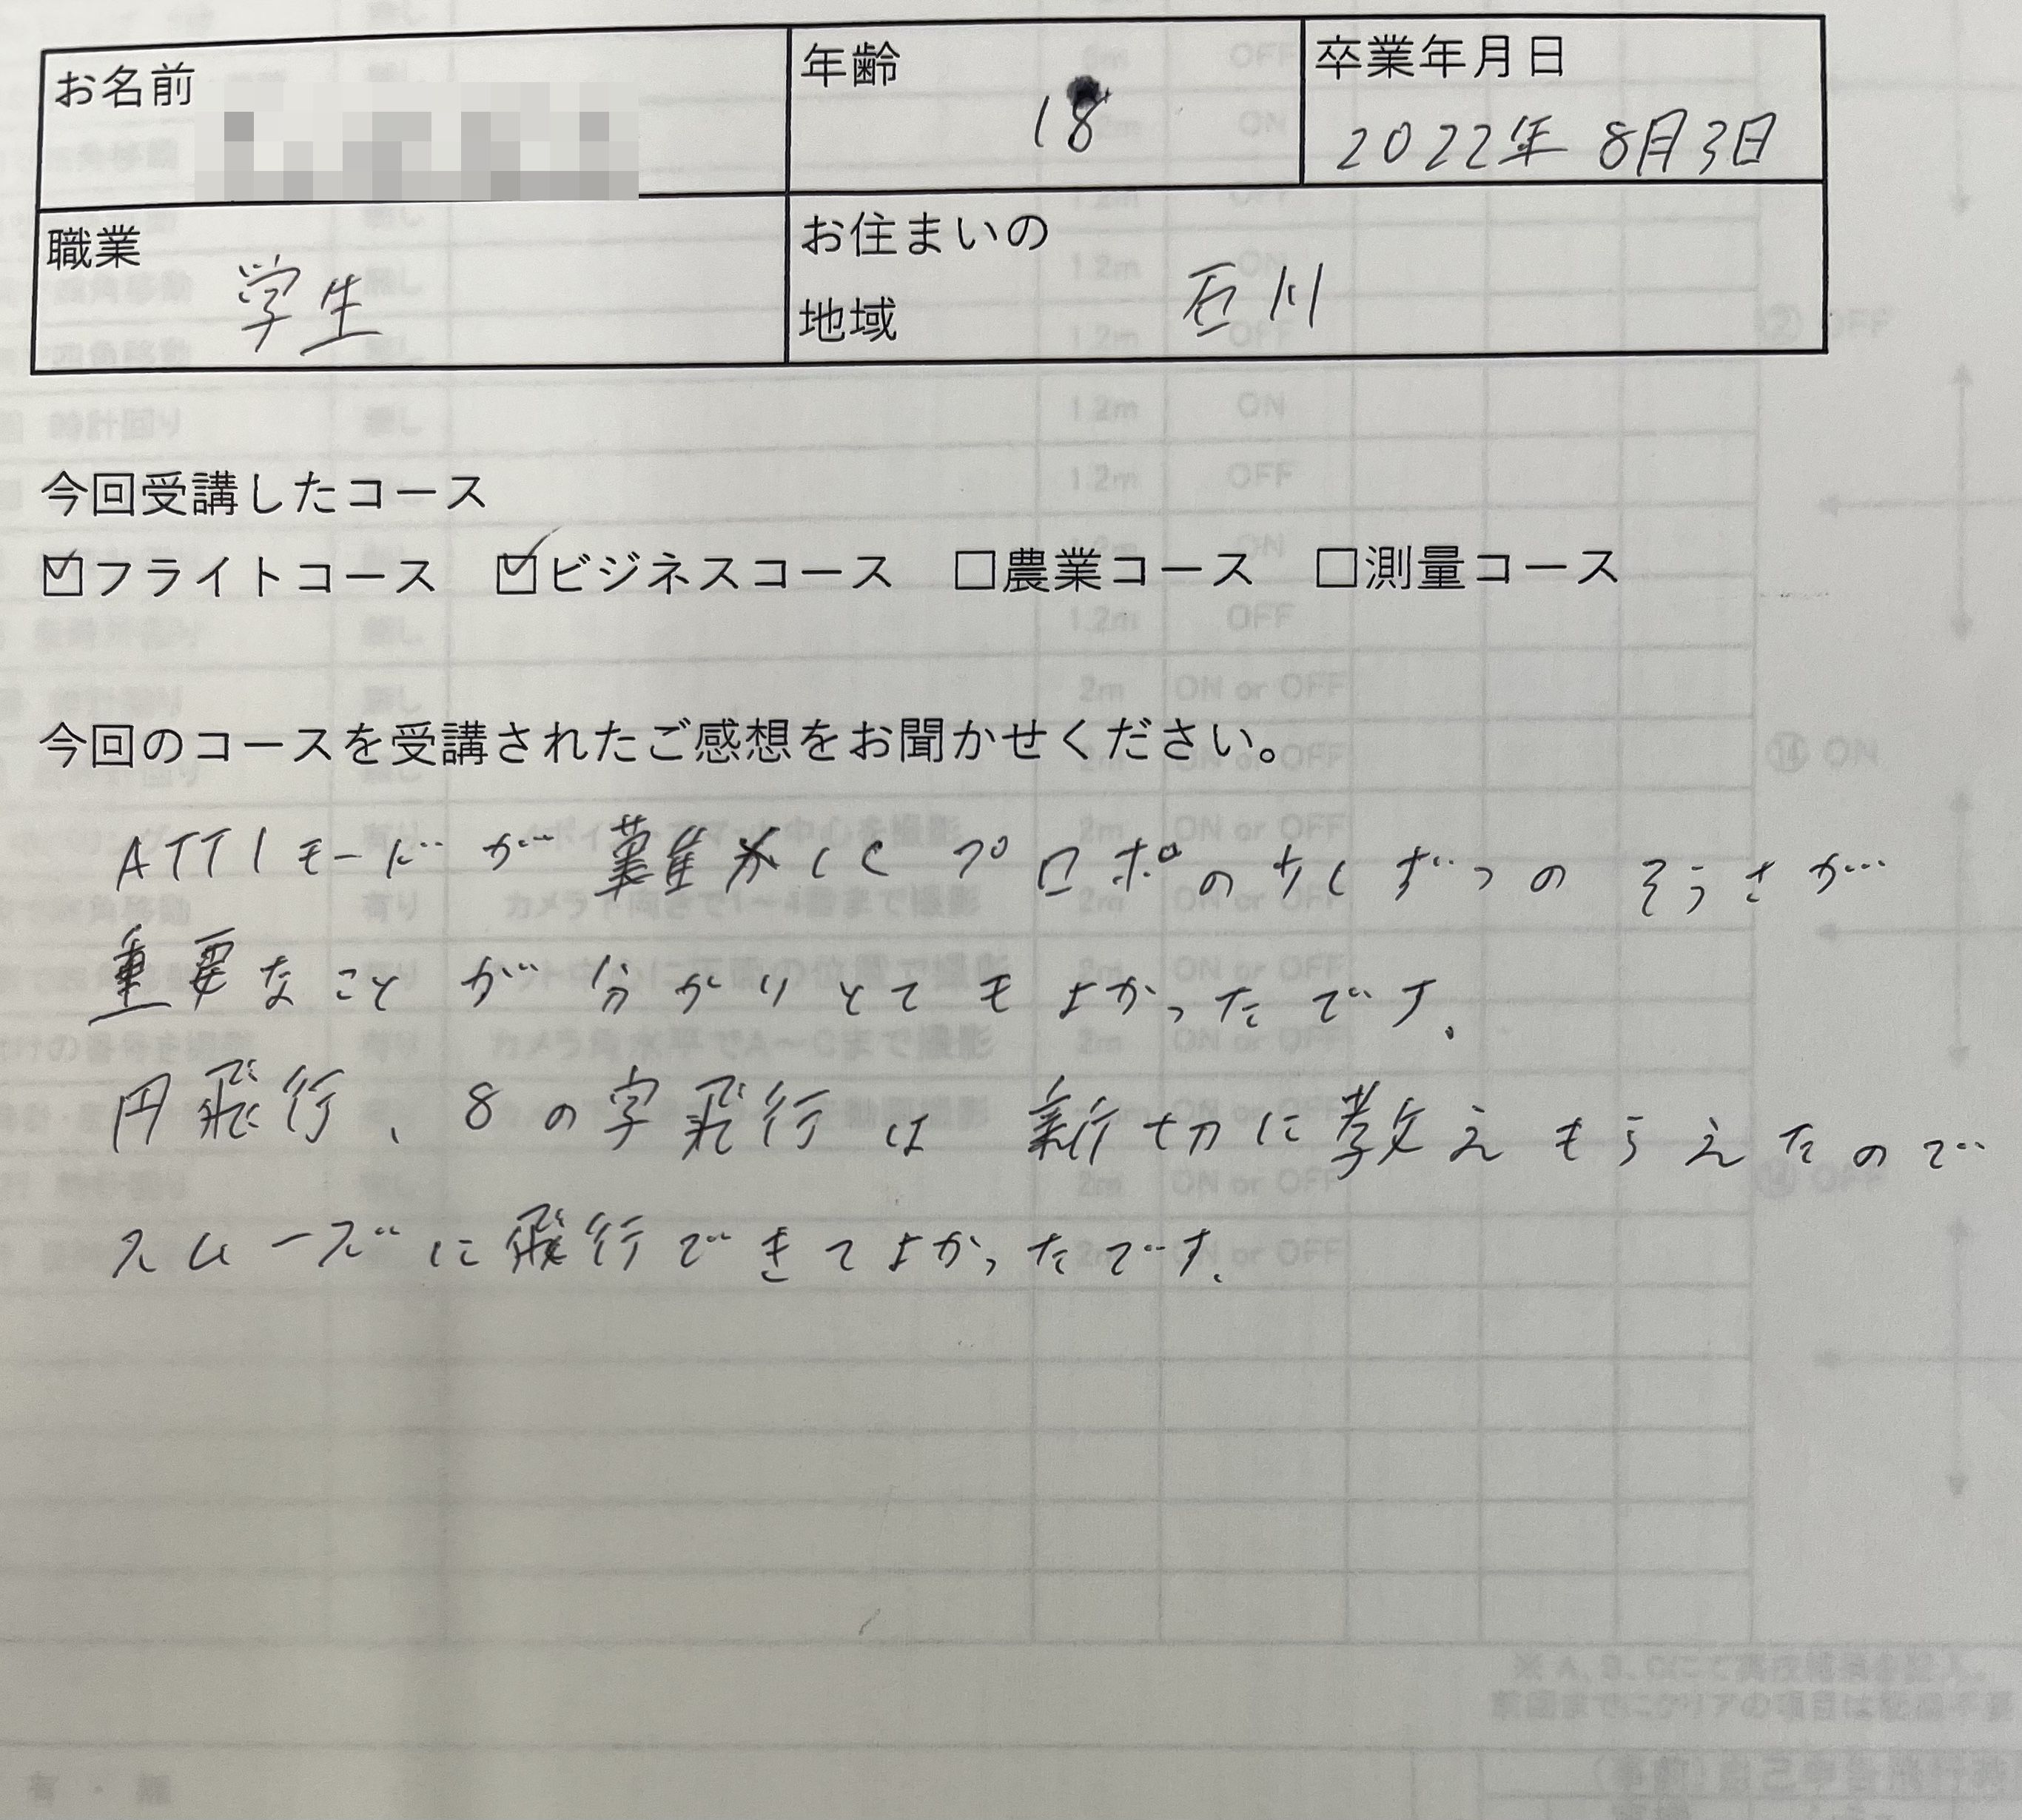 お名前
年齢
18
卒業年月日
2022年 8月3日
職業
学生
お住まいの
地域
石川
今回受講したコース
☑フライトコース ☑ビジネスコース □農業コース □測量コース
今回のコースを受講されたご感想をお聞かせください。
ATTIモードが難しくプロポの少しずつのそうさが
重要なことが分かりとてもよかったです。
円飛行、8の字飛行は親切に教えもらえたので
スムーズに飛行できてよかったです。